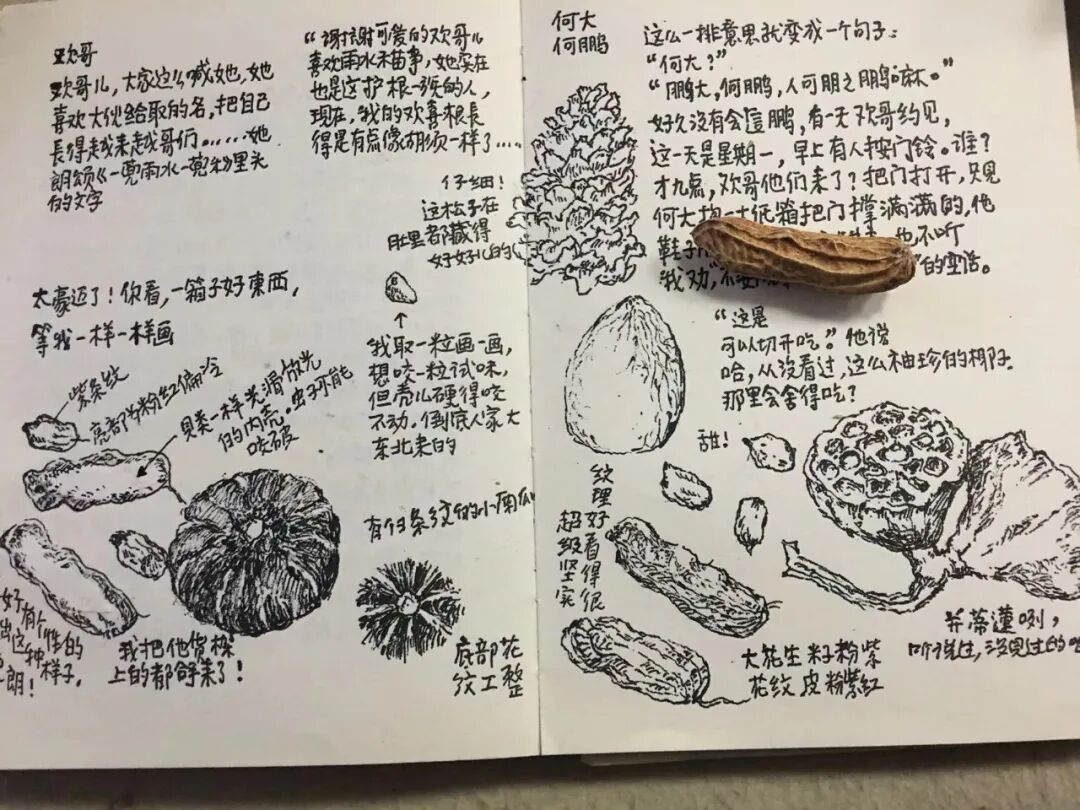 欢哥
欢哥儿，大家这么喊她，她
喜欢大伙给取的名，把自己
長得越来越哥们。……她
朗颂《一兜雨水一兜秒里头
的文字
“谢謝可爱的欢哥儿
喜欢雨水苗事，她实在
也是这护根一族的人，
现在，我的欢喜根長
得是有点像胡须一样了….
仔细！
这松子在
肚里都藏得
好好儿的
太豪迈了！你看，一箱子好東西，
等我一样一样画
我取一粒画一画，
想咬一粒试味，
但壳儿硬得咬
不动。倒底人家大
东北来的
紫条纹
亮部为粉红偏冷
貝类一样光滑放光
的内壳。虫子不能
咬破
有白条纹的小南瓜
好有个性的
出这种样子，
朗！
我把他货栋
上的都舒来了！
底部花
纹工整
何大
何鹏
这么一排意思就变成一个句子：
“何大？”
“鹏大，何鹏，人可朋之鹏嘛。”
好久没有会這鹏，有一天欢哥约见，
这一天是星期一，早上有人按门铃。谁？
才九点，欢哥他们来了？把门打开，只見
何大抱一大纸箱把门撑满满的，他
鞋子 也不听
我劝 的空话。
“这是
可以切开吃。”他说
哈，从没看过，这么袖珍的椰子
那里会舍得吃？
甜！
纹理好看得很
超级坚实
大花生籽粉紫
花纹皮粉紫红
并蒂蓮咧，
听说过，没見过的吧